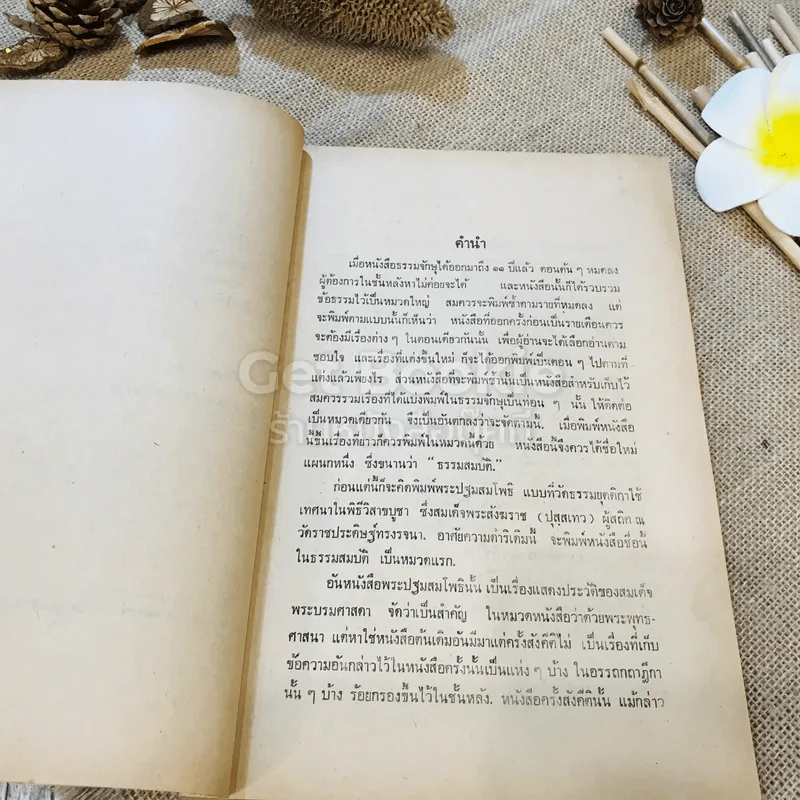 คำนำ
เมื่อหนังสือธรรมจักษุได้ออกมาถึง ๑๑ ปีแล้ว ตอนต้น ๆ หมดลง
ผู้ต้องการในชั้นหลังหาไม่ค่อยจะได้ และหนังสือนั้นก็ได้รวบรวม
ข้อธรรมไว้เป็นหมวดใหญ่ สมควรจะพิมพ์ซ้ำตามรายที่หมดลง แต่
จะพิมพ์ตามแบบนั้นก็เห็นว่า หนังสือที่ออกครั้งก่อนเป็นรายเดือนควร
จะต้องมีเรื่องต่าง ๆ ในตอนเดียวกันนั้น เพื่อผู้อ่านจะได้เลือกอ่านตาม
ชอบใจ และเรื่องที่แต่งขึ้นใหม่ ก็จะได้ออกพิมพ์เป็นตอน ๆ ไปตามที่
แต่งแล้วเพียงไร ส่วนหนังสือที่จะพิมพ์ซ้ำนั้นเป็นหนังสือสำหรับเก็บไว้
สมควรรวมเรื่องที่ได้แบ่งพิมพ์ในธรรมจักษุเป็นท่อน ๆ นั้น ให้ติดต่อ
เป็นหมวดเดียวกัน จึงเป็นอันตกลงว่าจะจัดตามนี้. เมื่อพิมพ์หนังสือ
นี้ขึ้นเรื่องที่ยาวก็ควรพิมพ์ในหมวดนี้ด้วย หนังสือนี้จึงควรได้ชื่อใหม่
แผนกหนึ่ง ซึ่งขนานว่า “ธรรมสมบัติ.”
ก่อนแต่นี้ก็จะคิดพิมพ์พระปฐมสมโพธิ แบบที่วัดธรรมยุตติกาใช้
เทศนาในพิธีวิสาขบูชา ซึ่งสมเด็จพระสังฆราช (ปุสฺสเทว) ผู้สถิต ณ
วัดราชประดิษฐ์ทรงรจนา. อาศัยความดำริเดิมนี้ จะพิมพ์หนังสือชื่อนี้
ในธรรมสมบัติ เป็นหมวดแรก.
อันหนังสือพระปฐมสมโพธินั้น เป็นเรื่องแสดงประวัติของสมเด็จ
พระบรมศาสดา จัดว่าเป็นสำคัญ ในหมวดหนังสือว่าด้วยพระพุทธ-
ศาสนา แต่หาใช่หนังสือต้นเดิมอันมีมาแต่ครั้งสังคีติไม่ เป็นเรื่องที่เก็บ
ข้อความอันกล่าวไว้ในหนังสือครั้งนั้นเป็นแห่ง ๆ บ้าง ในอรรถกถาฎีกา
นั้น ๆ บ้าง ร้อยกรองขึ้นไว้ในชั้นหลัง. หนังสือครั้งสังคีตินั้น แม้กล่าว